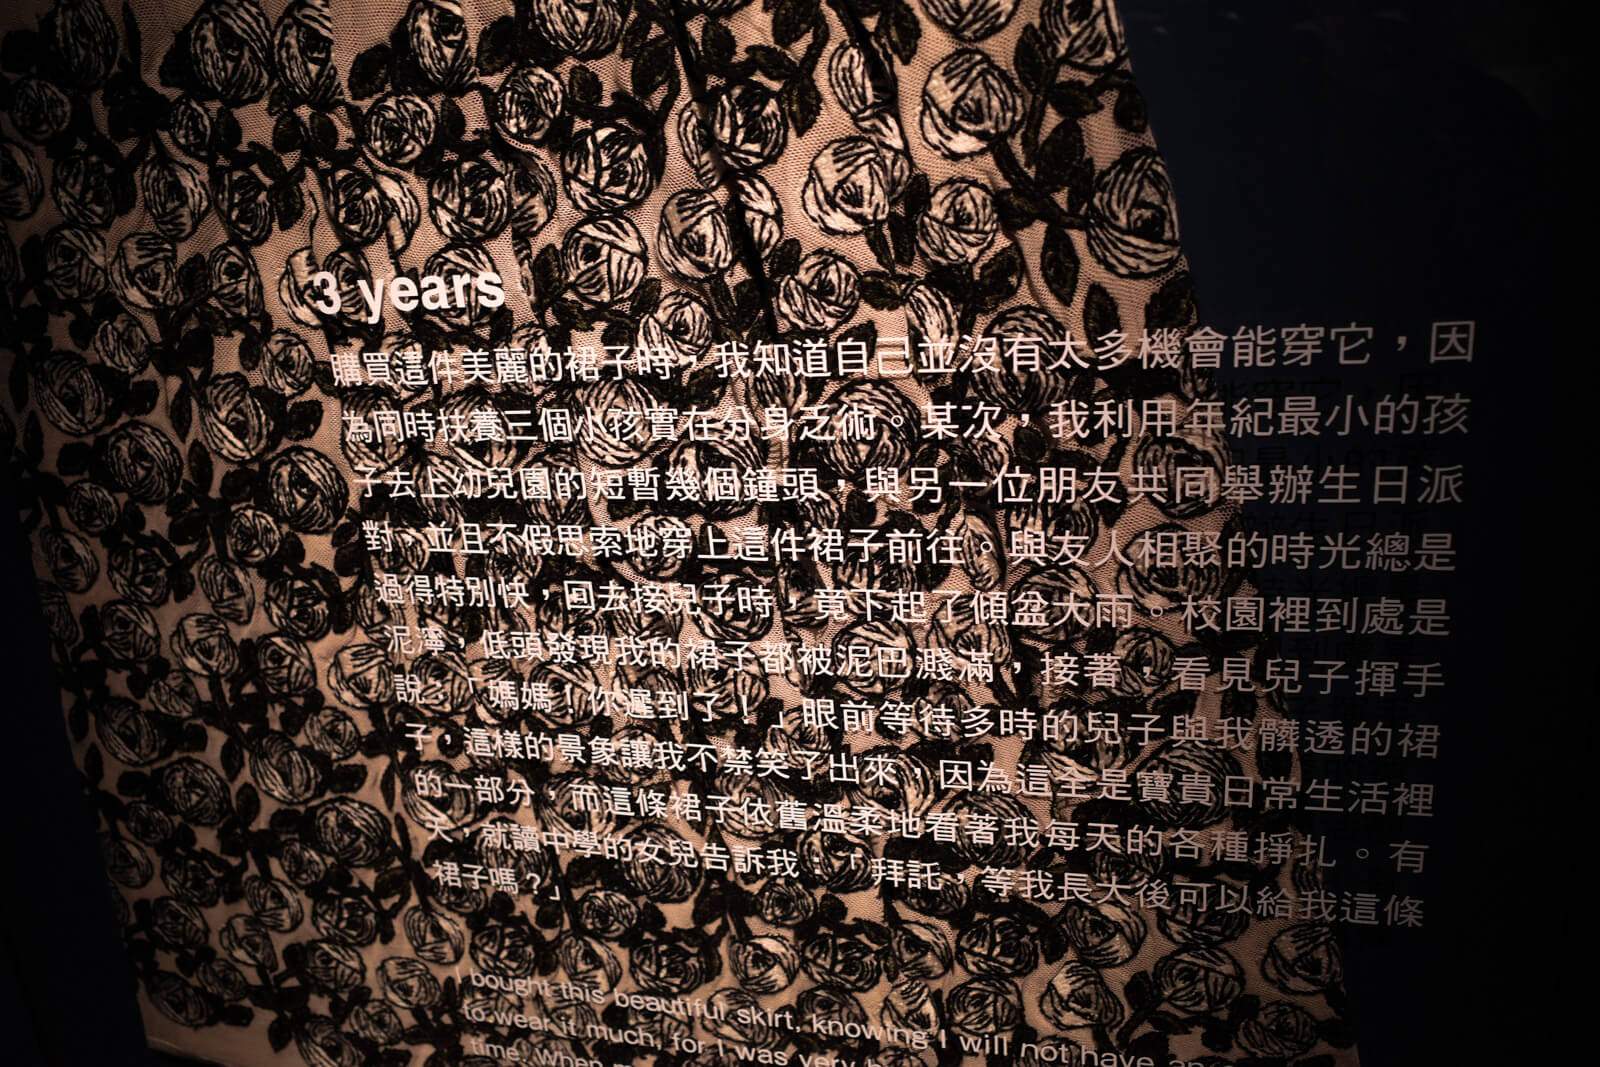 3 years
購買這件美麗的裙子時，我知道自己並沒有太多機會能穿它，因
為同時扶養三個小孩實在分身乏術。某次，我利用年紀最小的孩
子去上幼兒園的短暫幾個鐘頭，與另一位朋友共同舉辦生日派
對，並且不假思索地穿上這件裙子前往。與友人相聚的時光總是
過得特別快，回去接兒子時，竟下起了傾盆大雨。校園裡到處是
泥濘，低頭發現我的裙子都被泥巴濺滿，接著，看見兒子揮手
說：「媽媽！你遲到了！」眼前等待多時的兒子與我髒透的裙
子，這樣的景象讓我不禁笑了出來，因為這全是寶貴日常生活裡
的一部分，而這條裙子依舊溫柔地看著我每天的各種掙扎。有
天，就讀中學的女兒告訴我：「拜託，等我長大後可以給我這條
裙子嗎？」
I bought this beautiful skirt, knowing I will not have
to wear it much, for I was very
time. When